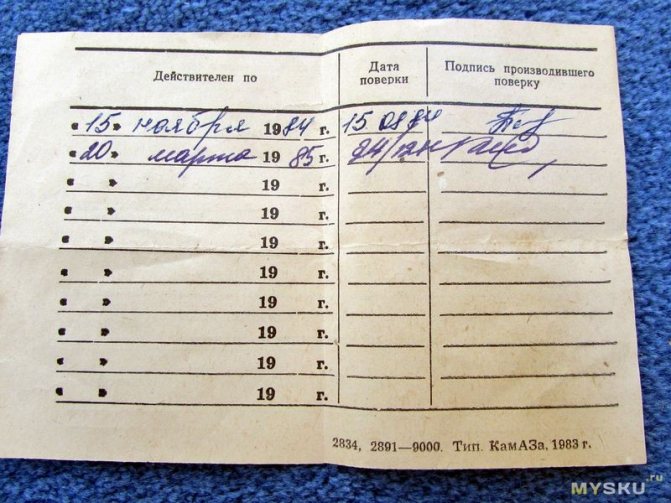 Действителен по Дата поверки Подпись производившего поверку
«15» ноября 1984 г. 15 08 84
«20» марта 1985 г.
« » 19 г.
« » 19 г.
« » 19 г.
« » 19 г.
« » 19 г.
« » 19 г.
« » 19 г.
« » 19 г.
2834, 2891—9000. Тип. КамАЗа, 1983 г.
MYSKU.ru